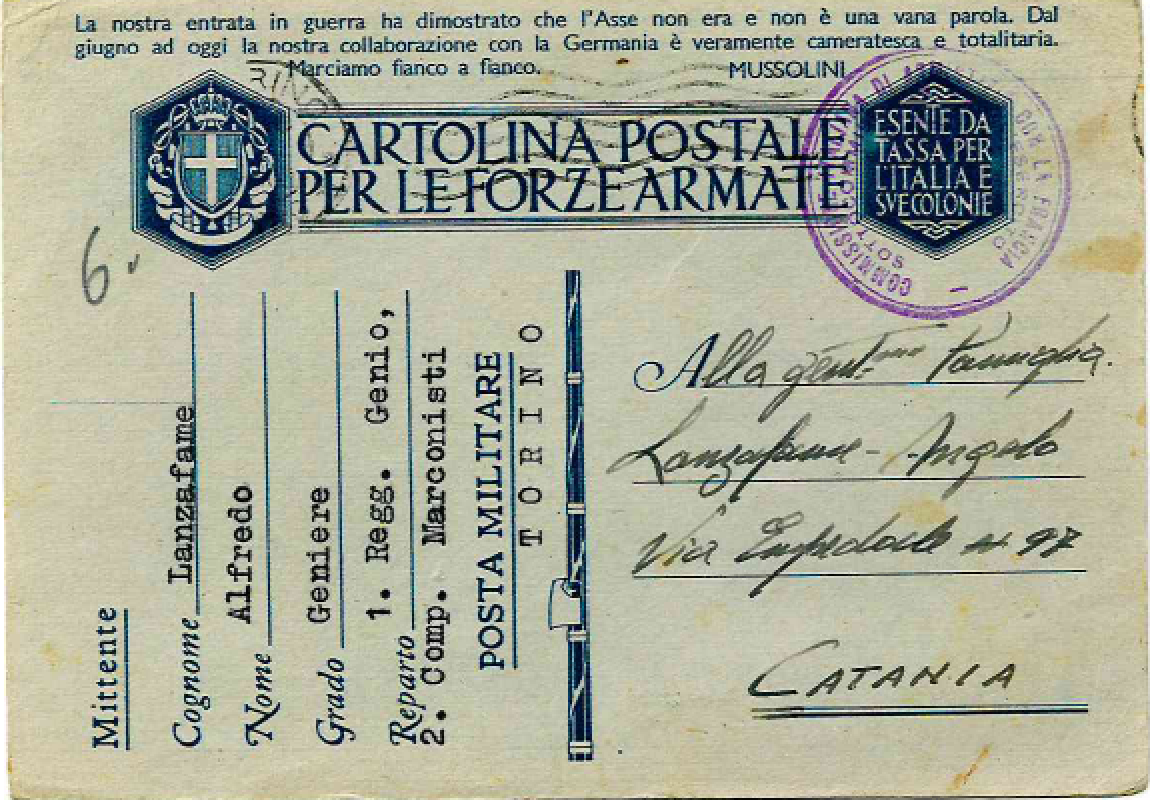 La nostra entrata in guerra ha dimostrato che l'Asse non era e non è una vana parola. Dal
giugno ad oggi la nostra collaborazione con la Germania è veramente cameratesca e totalitaria.
Marciamo fianco a fianco. MUSSOLINI
CARTOLINA POSTALE
PER LE FORZE ARMATE
ESENTE DA
TASSA PER
L'ITALIA E
SVE COLONIE
COMMISSI DI CON LA FRANCIA
SOTTO
6.
Mittente
Cognome Lanzafame
Nome Alfredo
Grado Geniere
Reparto 1. Regg. Genio,
2. Comp. Marconisti
POSTA MILITARE
TORINO
Alla gent.ma Famiglia
Lanzafame - Angelo
Via Empedocle n. 97
CATANIA